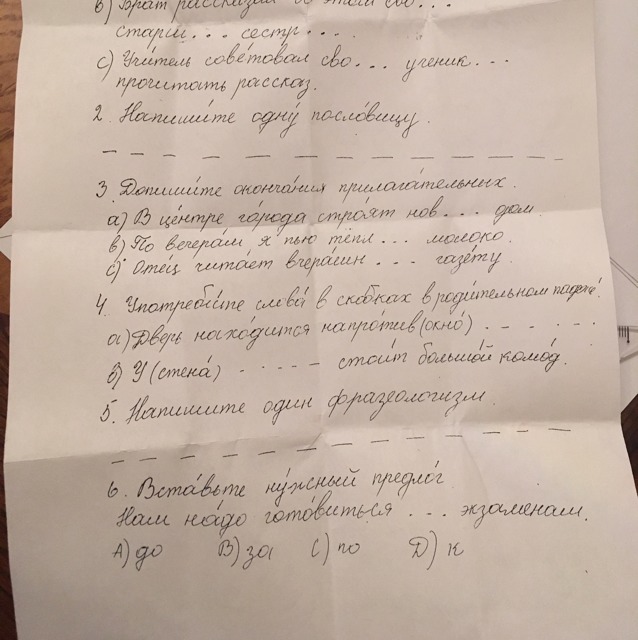 в) Брат рассказал об этом сво...
старш... сестр....
с) Учи́тель сове́товал сво... ученик...
прочитать рассказ.
2. Напиши́те одну́ посло́вицу.
_ _ _ _ _ _ _ _ _ _ _ _ _
3. Допиши́те оконча́ния прилага́тельных.
а) В це́нтре го́рода стро́ят нов... дом.
в) По вечера́м я пью тёпл... молоко.
с) Оте́ц чита́ет вчера́шн... газе́ту.
4. Употреби́те слова́ в скобках в роди́тельном падеже́.
а) Дверь нахо́дится напро́тив (окно́) - - - ...
б) У (стена́) - - - - - стои́т большо́й комо́д.
5. Напишите один фразеологизм.
_ _ _ _ _ _ _ _ _ _ _ _ _
6. Вста́вьте ну́жный предло́г
Нам на́до гото́виться ... экзаменам.
А) до В) за С) по D) к